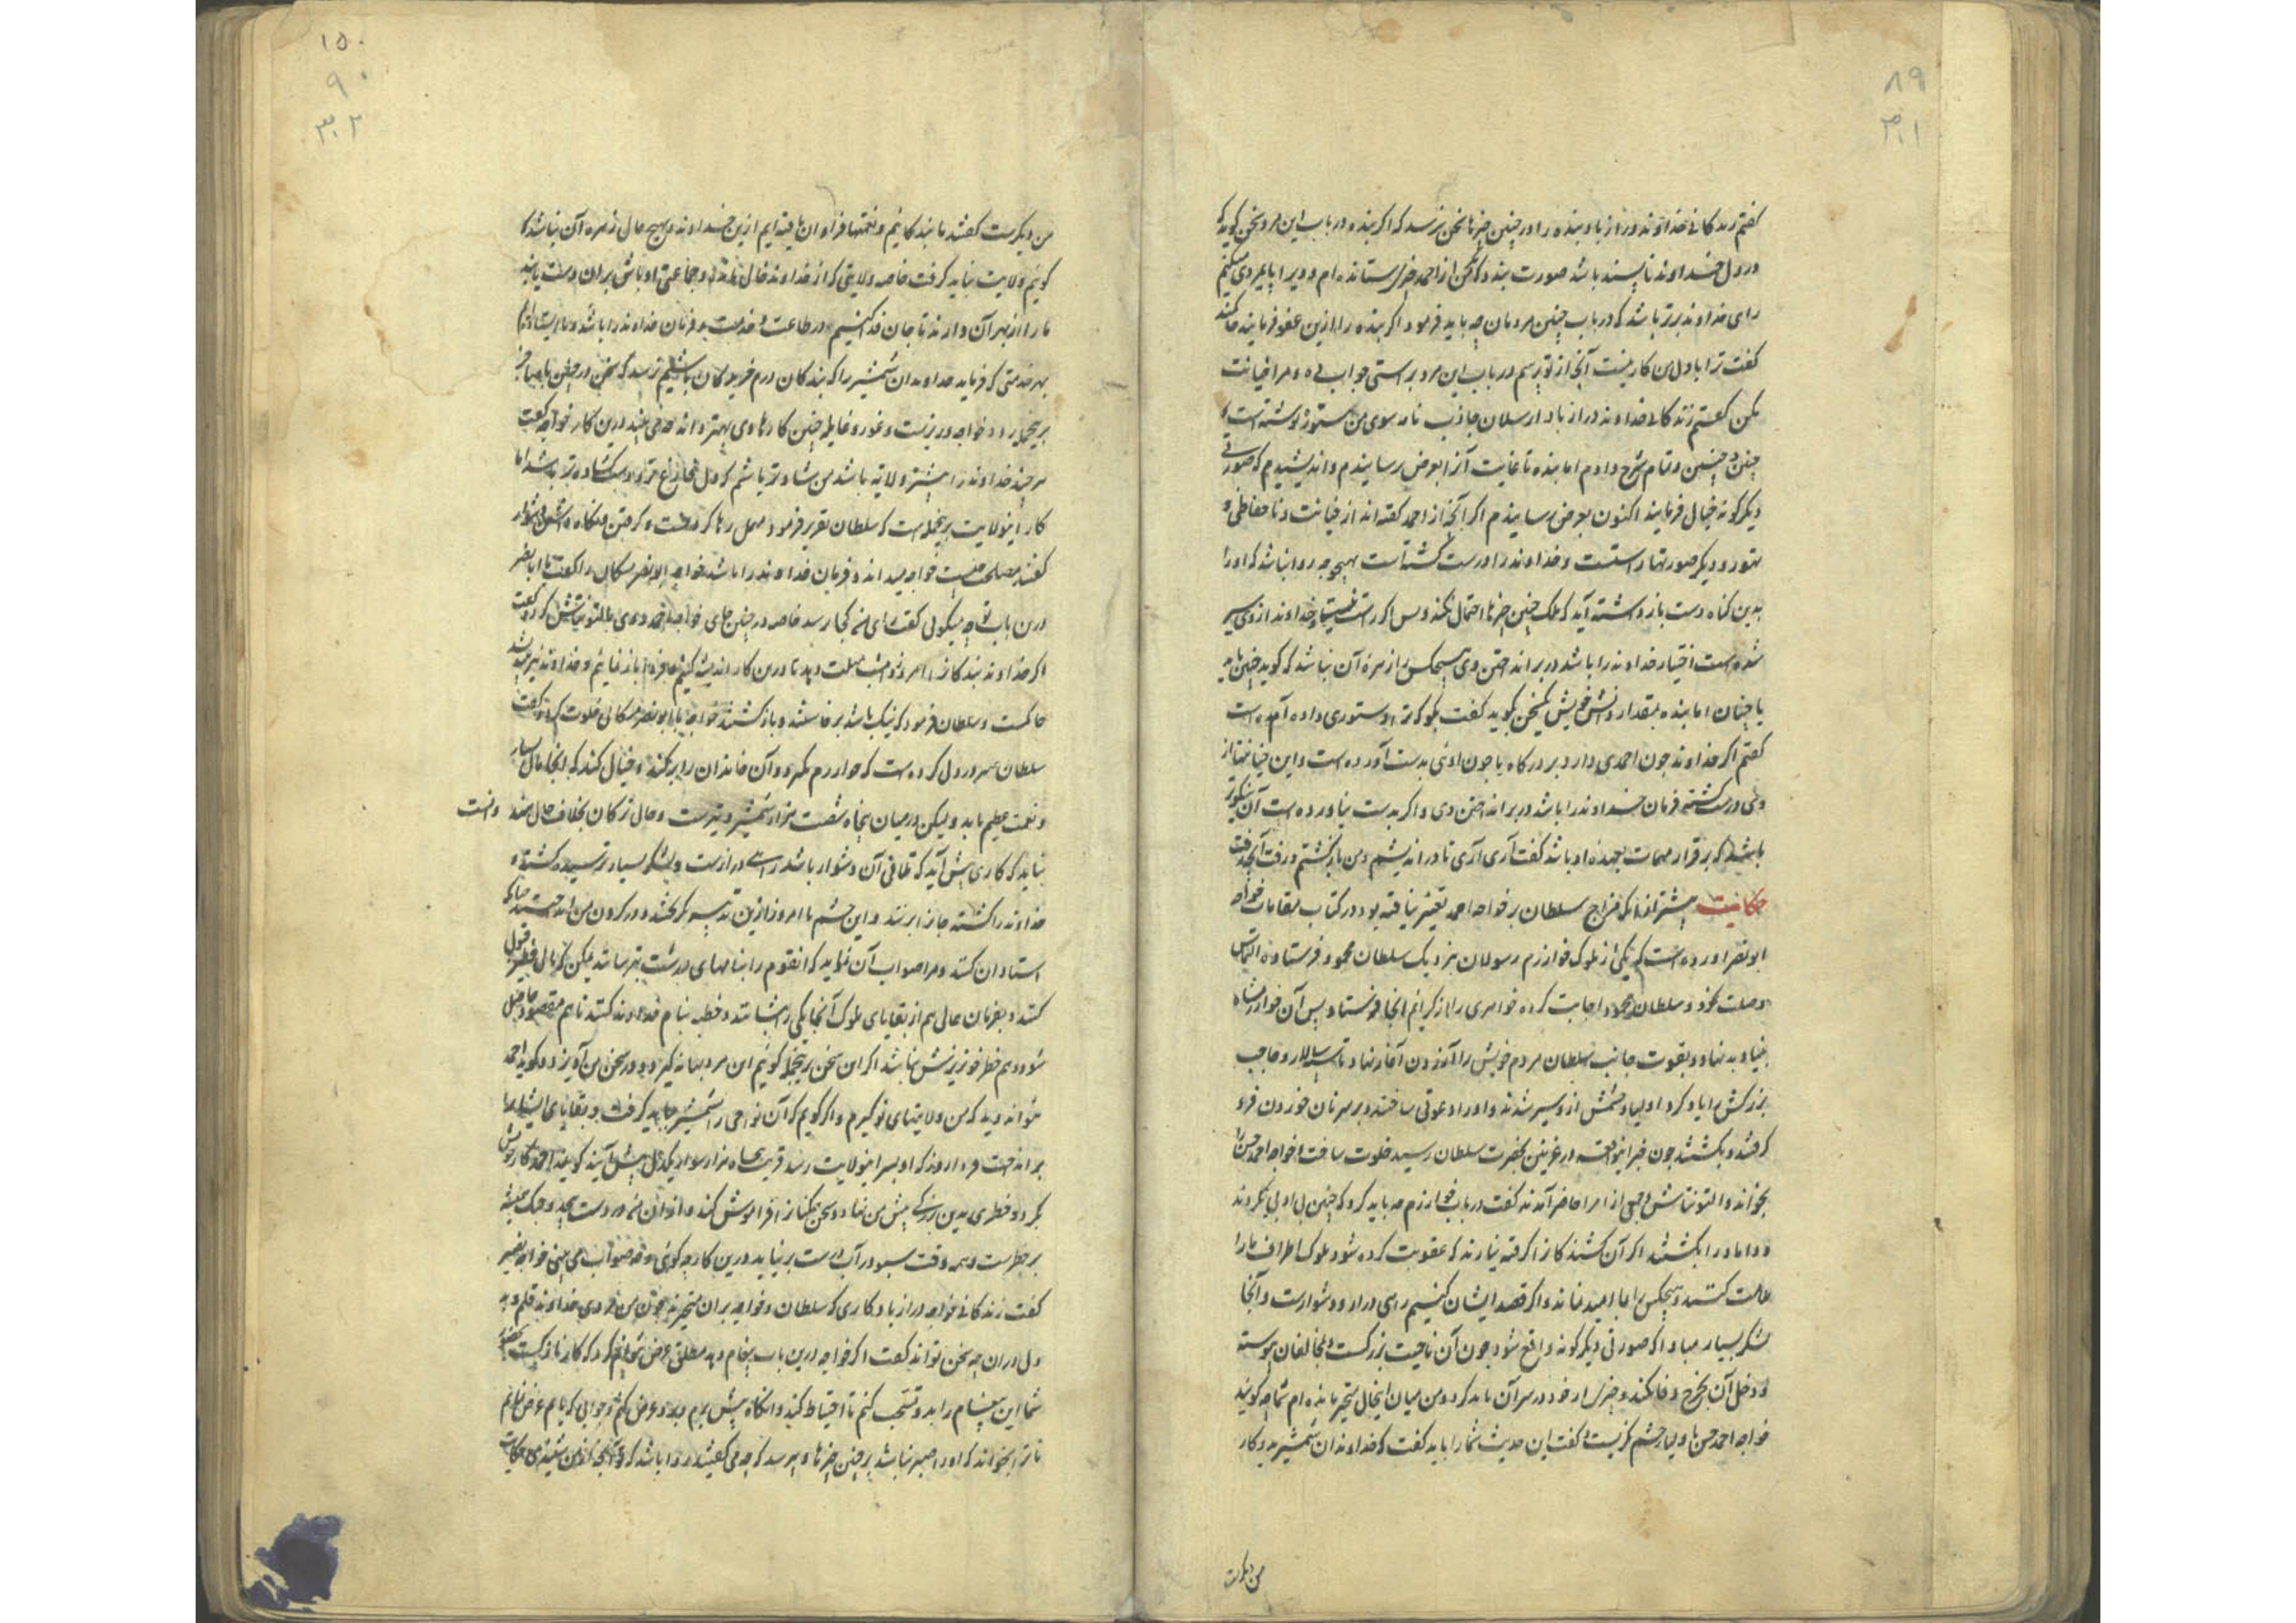 ۸۹
۳۰۱
کفتم زندکانی خداوند دراز باد بنده را در چنین چیزها سخن نرسد که اکر بنده در باب این مرد سخن کوید که
در دل خداوند ناپسند باشد صورت بندد که من از احمد چیزی ستانده ام و ویرا پایمردی میکنم
رای خداوند برتر باشد که در باب چنین مردمان چه باید فرمود اکر بنده را ازین عفو فرمایند
کفت ترا با دل من کار نیست آنچ از تو پرسم در باب این مرد براستی جواب ده و مرا خیانت
مکن کفتم زندکانی خداوند دراز باد ارسلان جاذب نامه سوی من مستور نوشته است
چنین و چنین و تمام شرح دادم اما بنده تا غایت آنرا بعرض نرسانیدم و اندیشیدم که صورتی
دیکر کونه خیال فرمایند اکنون بعرض رسانیدم اکر آنچه از احمد کفته اند از خیانت و ناحفاظی و
تهور و دیکر صورتها راستست و خداوند را درست کشته است بهیچ وجه روا نباشد که او را
بدین کناه دست باز داشته آید که ملک چنین چیزها احتمال نکند و بس اکر راست نیست و خداوند از وی سیر
شده است اختیار خداوند را باشد در برانداختن وی هیچکس را زهره آن نباشد که کوید چنین باید
یا چنان اما بنده بمقدار دانش خویش یک سخن بکوید کفت بکو که ترا دستوری داده آمده است
کفتم اکر خداوند چون احمدی دارد بر درکاه یا چون اوئی بدست آورده است و این خیانتها از
وی درست کشته فرمان خداوند را باشد در برانداختن وی و اکر بدست نیاورده است آن نیکوتر
باشد که برقرار مهمات بعهده او باشد کفت آری آری تا در اندیشم و من بازکشتم و رفت آنچه رفت
حکایت پیشتر از انکه مزاج سلطان بر خواجه احمد تغییر یافته بود در کتاب مقامات خواجه
ابونصر آورده است که یکی از ملوک خوارزم رسولان نزدیک سلطان محمود فرستاده التماس
وصلت نمود و سلطان محمود اجابت کرده خواهری را از کرایم آنجا فرستاد پس آن خوارزمشاه
بنیاد بد نهاد و بقوت جانب سلطان مردم خویش را آزردن آغاز نهاد تا سپاسالار و حاجب
بزرکش را یاد کرد اولیا و حشمش ازو سیر شدند و او را دعوتی ساختند و بر سر نان خوردن فرو
کرفتند و بکشتند چون خبر این واقعه در غزنین بحضرت سلطان رسید خلوت ساخت و خواجه احمد حسن را
بخواند و التونتاش و جمعی از امرا حاضر آمدند کفت در باب خوارزم چه باید کرد که چنین بی ادبی بکردند
و داماد را بکشتند اکر آن کشندکان را کرفته نیارند که عقوبت کرده شود ملوک اطراف ما را
ملامت کنند و هیچکس را بما امید نماند و اکر قصد ایشان کنیم راهی دراز و دشوارست و آنجا
لشکر بسیار مبادا که صورتی دیکر کونه واقع شود چون آن ناحیت بزرکست و بمخالفان پیوسته
و دخل آن بخرج وفا نکند و چیزی از خود در سر آن باید کرد و من میان این حال متحیر مانده ام شما چه کوئید
خواجه احمد حسن با اولیا و حشم نکریست و کفت این حدیث شما را باید کفت که خداوندان شمشیرید و کار
من دیکرست
۱۵۰
۹۰
۳۰۲
من دیکرست کفتند ما بندکانیم و نعمتها فراوان یافته ایم ازین خداوند و بهیچ حال زهره آن نباشد که
کوئیم ولایت نباید کرفت خاصه ولایتی که از خداوند خالی مانده و جماعتی اوباش بران دست یابند
ما را از بهر آن دارند تا جان فدا کنیم در طاعت و خدمت و فرمان خداوند را باشد و ما ایستاده ایم
بهر خدمتی که فرماید خداوندان شمشیر را که بندکان درم خریدکان باشیم نرسد که سخن در چنین بابها
برین جمله راند خواجه وزیرست و غور و غایله چنین کارها وی بهتر داند چه می بیند درین کار خواجه کفت
هر چند خداوند را بیشتر ولایت باشد من شادتر باشم که دل فارغ تر و دست کشاده تر باشد اما
کار این ولایت برین جمله است که سلطان تقریر فرمود مهمل رها کردن زشت و کرفتن و نکاه داشتن دشوار
کفتند مصلحت چیست خواجه میداند و فرمان خداوند را باشد خواجه ابونصر مشکان را کفت یا ابانصر
درین باب تو چه میکوئی کفت رای من کجا رسد خاصه در چنین جای خواجه احمد و التونتاش کرد و کفت
اکر خداوند بندکان را امروز و امشب مهلت دهد تا درین کار اندیشه کنیم و فردا باز نمائیم و خداوند نیز بیندیشد
حاکمست و سلطان فرمود که نیک باشد برخاستند و بازکشتند خواجه با ابونصر مشکان خلوت کرد و کفت
سلطان سر در دل کرده است که خوارزم بکیرد و آن خاندان را برکند و خیال کند که آنجا مال بسیار
و نعمت عظیم یابد ولیکن در میان پنجاه شصت هزار شمشیر و تیرست و حال ترکان بخلاف حال هند دانست
نباید که کاری پیش آید که تلافی آن دشوار باشد راهی درازست و لشکر بسیار ترسیده کشته و
خداوند را کشته
استادان کنند و مرا صواب آن نماید که آن قوم را بنامهای درشت بترسانند لیکن
کنند و بفرمان عالی هم از بقایای ملوک آنجا یکی را بنشانند و خطبه بنام خداوند کنند تا هم مقصود حاصل
شود و هم خطر خونریزش نباشد اکر این سخن برین جمله کوئیم این مرد بهانه کیرد و در سخن من آویزد و کوید احمد
نتواند دید که من ولایتهای نو کیرم و اکر کویم که آن نواحی را بشمشیر بباید کرفت و بقایای ایشان را
برانداخت فردا روز که او بسر این ولایت رسد قریب پنجاه هزار سوار یکدل پیش آیند کوید احمد کار خویش
بکرد و خطری بدین بزرکی پیش من نهاد و سخن
بر خطرست و همه وقت سبو در آب درست بر نیاید درین کار چه کوئی و چه صواب می بینی خواجه بونصر
کفت زندکانی خواجه دراز باد کاری که سلطان و خواجه بران متحیرند چون من مردی خداوند قلم و
دل دران چه سخن تواند کفت اکر خواجه درین باب پیغام دهد مطلق عرض نتوانم کرد که کار نازکست
شما این پیغام را بدو نسخت کنم تا احتیاط کنید و آنکاه پیش برم و بدو عرض کنم و جوابی که یابم عرض نمایم
تا ترا بخواند که او را صبر نباشد بر چنین چیزها و بپرسد که چه می کفتند روا باشد که